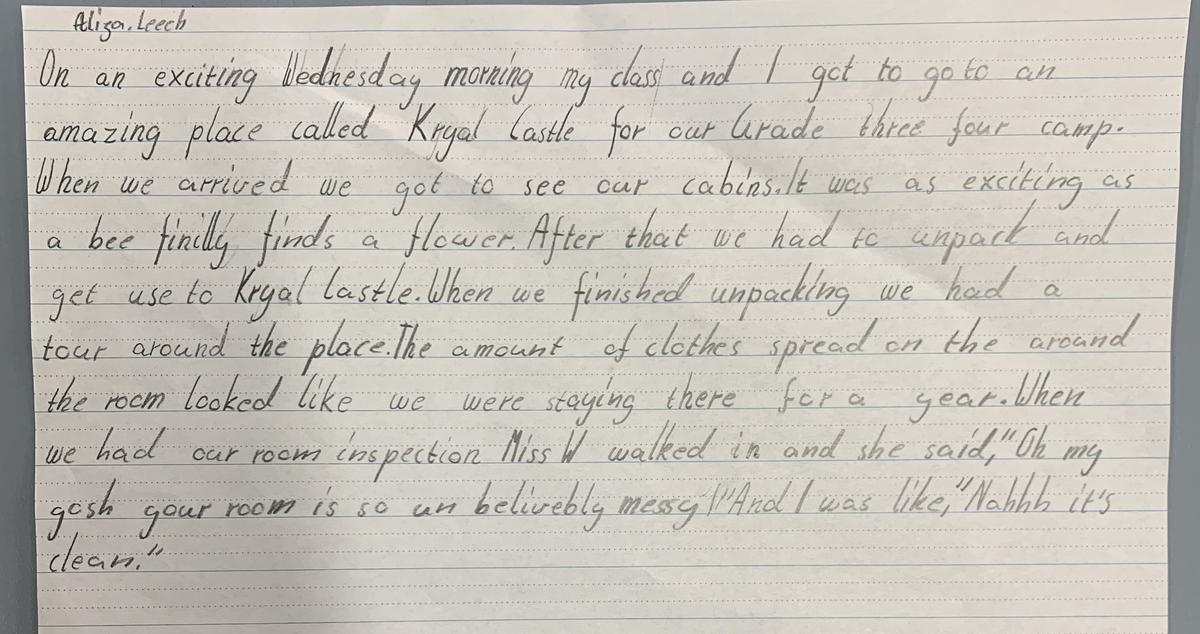 Aliza.Leech
On an exciting Wednesday morning my class and I got to go to an
amazing place called Kryal Castle for our Grade three four camp.
When we arrived we got to see our cabins.It was as exciting as
a bee finilly finds a flower. After that we had to unpack and
get use to Kryal Castle.When we finished unpacking we had a
tour around the place.The amount of clothes spread on the around
the room looked like we were staying there for a year.When
we had our room inspection Miss W walked in and she said,"Oh my
gosh your room is so un belivebly messy!"And I was like,"Nahhh it's
clean."